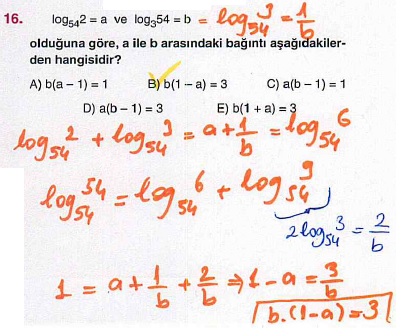 16. log₅₄2 = a ve log₃54 = b = log₅₄³ = 1/b
olduğuna göre, a ile b arasındaki bağıntı aşağıdakiler-
den hangisidir?
A) b(a – 1) = 1 B) b(1 – a) = 3 C) a(b – 1) = 1
D) a(b – 1) = 3 E) b(1 + a) = 3
log₅₄² + log₅₄³ = a + 1/b = log₅₄⁶
log₅₄⁵⁴ = log₅₄⁶ + log₅₄⁹
2log₅₄³ = 2/b
1 = a + 1/b + 2/b ⇒ 1 - a = 3/b
b.(1-a) = 3